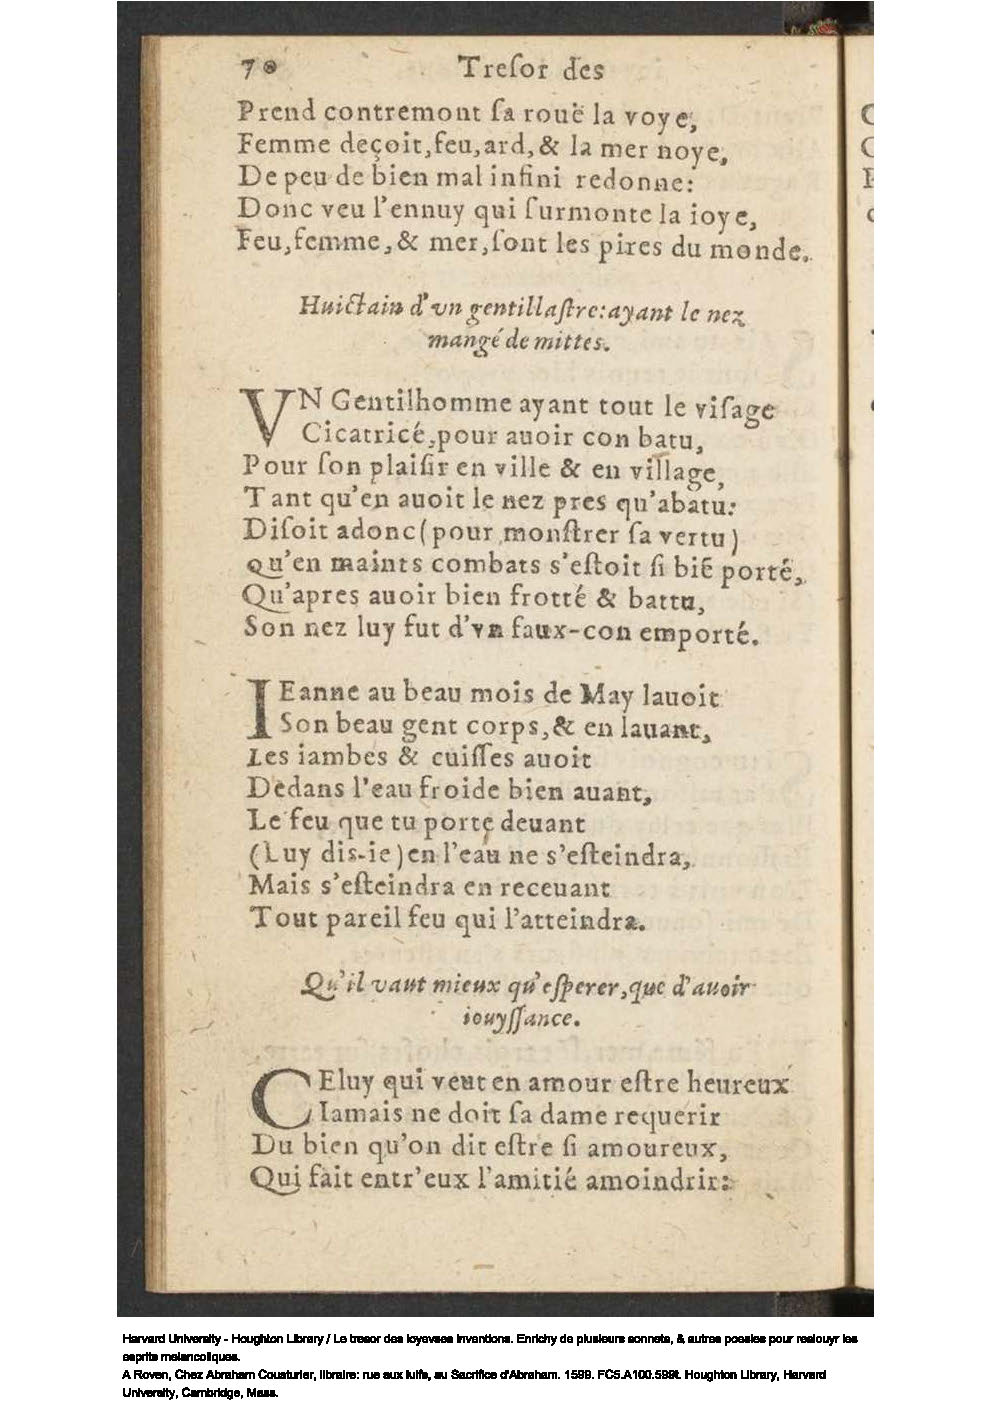 70 Treſor des
Prend contremont ſa rouë la voye,
Femme deçoit,feu,ard,& la mer noye,
De peu de bien mal infini redonne:
Donc veu l'ennuy qui ſurmonte la ioye,
Feu,femme,& mer,ſont les pires du monde.
Huictain d'vn gentillaſtre:ayant le nez
mangé de mittes.
VN Gentilhomme ayant tout le viſage
Cicatricé,pour auoir con batu,
Pour ſon plaiſir en ville & en village,
Tant qu'en auoit le nez pres qu'abatu:
Diſoit adonc(pour monſtrer ſa vertu)
qu'en maints combats s'eſtoit ſi biẽ porté,
Qu'apres auoir bien frotté & battu,
Son nez luy fut d'vn faux-con emporté.
IEanne au beau mois de May lauoit
Son beau gent corps,& en lauant,
Les iambes & cuiſſes auoit
Dedans l'eau froide bien auant,
Le feu que tu porte deuant
(Luy dis-ie)en l'eau ne s'eſteindra,
Mais s'eſteindra en receuant
Tout pareil feu qui l'atteindra.
Qu'il vaut mieux qu'eſperer,que d'auoir
iouyſſance.
CEluy qui veut en amour eſtre heureux
Iamais ne doit ſa dame requerir
Du bien qu'on dit eſtre ſi amoureux,
Qui fait entr'eux l'amitié amoindrir:
Harvard University - Houghton Library / Le tresor des ioyevses inventions. Enrichy de plusieurs sonnets, & autres poesies pour resiouyr les
esprits melancoliques.
A Roven, Chez Abraham Cousturier, libraire: rue aux Iuifs, au Sacrifice d'Abraham. 1599. FC5.A100.599t. Houghton Library, Harvard
University, Cambridge, Mass.